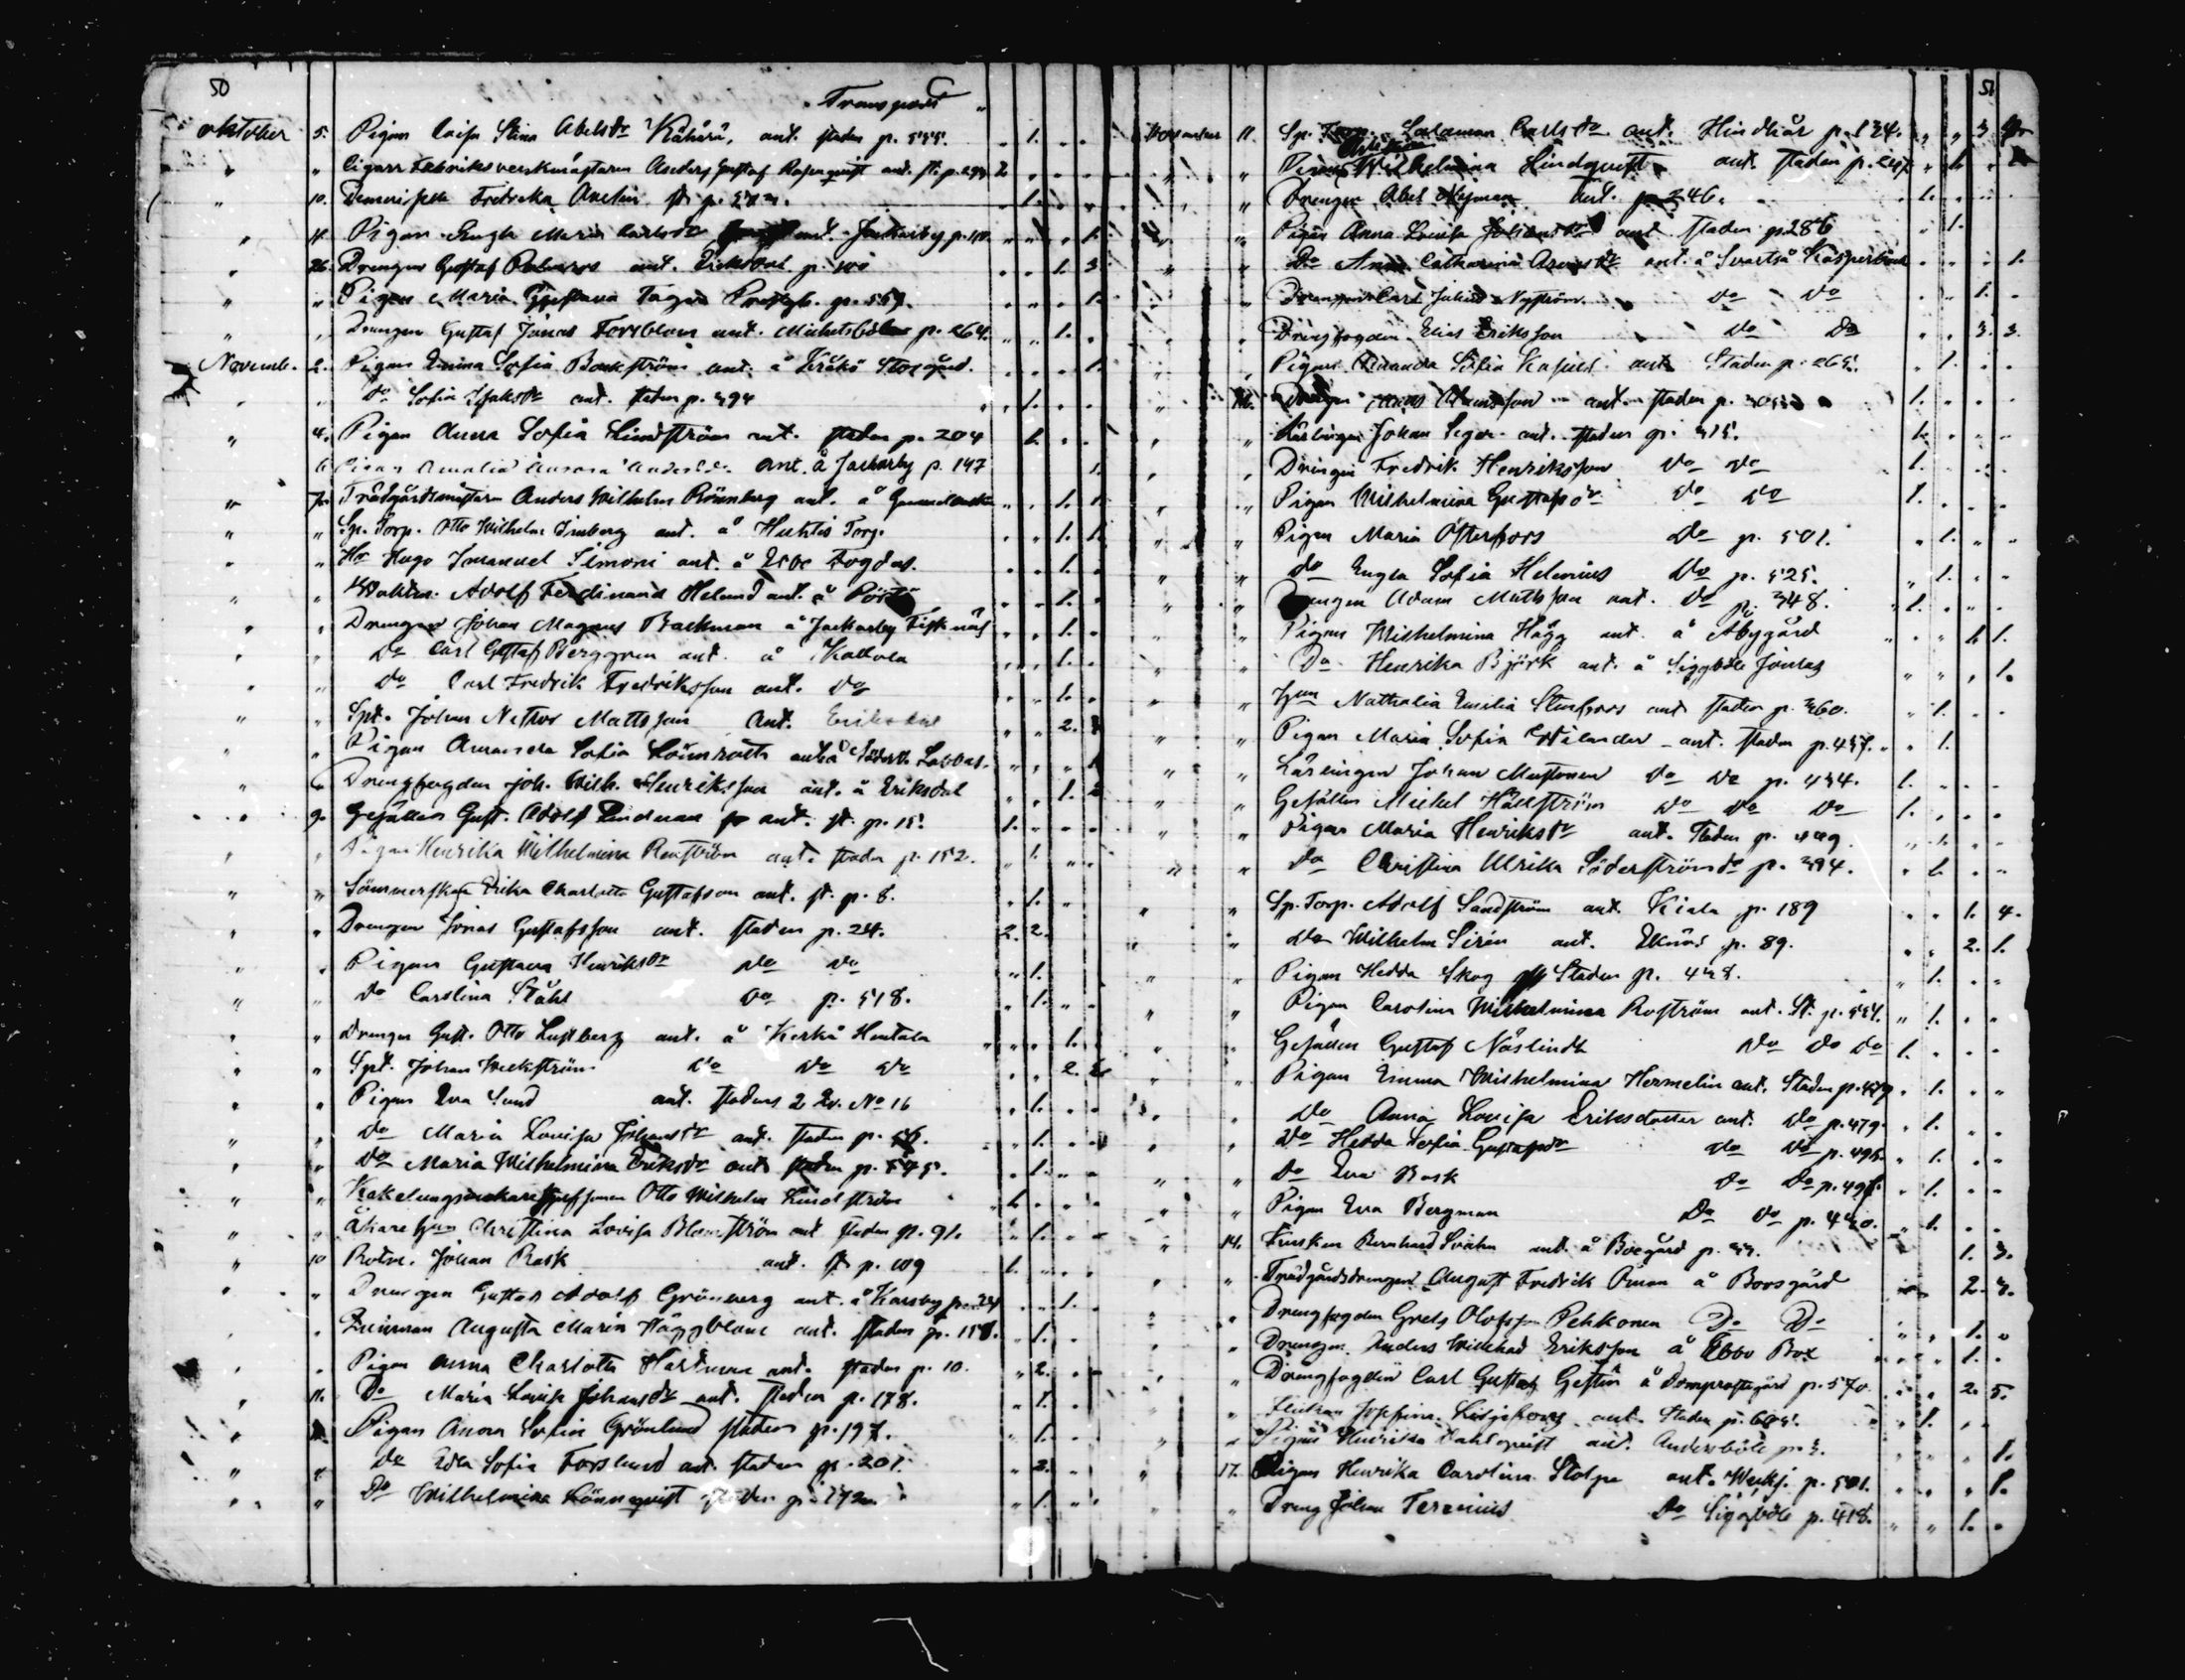 50
Transport
oktober 5. Pigan Caisa Stina Abelsdr Kähärä, ant. staden p. 555. 1.
" " Cigarr Fabriksverkmästaren Anders Gustaf Rosenquist ant. st. p. 293 2
" 10. Fredrika Axelin st. p. 1.
" Pigan Engla Maria Carlsdr ant. Jackarby p. 1.
" 26. Drengen Gustaf ant. Eriksdal p. 1. 3
" " Pigan Maria Gustava p. 557. 1.
" " Drengen Gustaf Jonas Forsblom ant. Mickelsböle p. 264. 1.
Novemb. 2. Pigan Emma Sofia Backström ant. å Kråkö Storgård. 1.
" " Do Sofia Isaksdr ant. staden p. 394 1.
" 4. Pigan Anna Sofia Lindström ant. staden p. 204 1.
6 Pigan Amalia Aurora Andersdr ant. å Jackarby p. 147 1.
" 7. Trädgårdsmästaren Anders Wilhelm Rönnberg ant. å 1. 1.
" " Sp. Torp. Otto Wilhelm ant. å Huktis Torp. 1. 1.
" " Hr Hugo Imanuel Simoni ant. å Ebbo Fogdas. 1.
" " Adolf Ferdinand Helund ant. å 1.
" " Drengen Johan Magnus Backman å Jackarby Fisknäs 1.
" " Do Carl Gustaf Berggren ant. å Kallola 1.
" " Do Carl Fredrik Fredriksson ant. Do 1.
" " Spt. Johan Nestor Mattsson ant. Eriksdal 2.
" " Pigan Amanda Sofia Lönnroth ant. å Labbas. 1
" Drengfogden Joh. Wilh. Henriksson ant. å Eriksdal 1. 2
" 9. Gesällen Gust. Adolf Lindman ant. st. p. 15. 1.
" " Pigan Henrika Wilhelmina Renström ant. staden p. 152. 1.
" " Sömmerskan Erika Charlotta Gustafsson ant. st. p. 8. 1.
" " Drengen Jonas Gustafsson ant. staden p. 24. 2. 2.
" " Pigan Gustava Henriksdr Do Do 1.
" " Do Carolina Ståhl Do p. 518. 1.
" " Drengen Gust. Otto Lustberg ant. å Kerko Hentala 1.
" " Spt. Johan Weckström Do Do Do 2. 2.
" " Pigan Eva Sund ant. stadens 2 Qv. No 16 1.
" " Do Maria Lovisa Johansdr ant. staden p. 56. 1.
" " Do Maria Wilhelmina Eriksdr ant. staden p. 545. 1.
" " Kakelungsmakare Otto Wilhelm Lindström 1.
" " Åkare Hun Christina Lovisa Blomström ant staden p. 91. 1.
" 10 Rotm. Johan Rask ant. st. p. 109 1.
" " Drengen Gustaf Adolf Grönberg ant. å Karsby p. 24 1.
" Augusta Maria Häggblom ant. staden p. 158. 1.
" " Pigan Anna Charlotta Hartman ant. staden p. 10. 2.
" 11. Do Maria Lovisa Johansdr ant. staden p. 178. 1.
" Pigan Anna Sofia Grönlund staden p. 197. 1.
" " Do Edla Sofia Forslund ant. staden p. 201. 2.
" " Do Wilhelmina Lönnquist staden p. 172. 1.
51
November 11. Sp. Torp. Salomon Carlsdr ant. Hindhår p. 134. 3
" " Wilhelmina Lindquist ant. staden p. 1.
" " Drengen Abel Nyman ant. p 246. 1.
" " Pigan Anna Lovisa Johansdr ant staden p 286 1.
" " Do Anna Catharina ant. å Svartså Kasperböle 1.
" Drengen Carl Julius Nyström. Do Do 1.
" Drengfogden Elias Eriksson Do Do 3. 3.
" Pigan Amanda Sofia ant. Staden p. 265. 1.
" Drengen Adamsson ant. staden p. 1.
" " Lärlingen Johan Seger ant. staden p. 315. 1.
" " Drengen Fredrik Henriksson Do Do 1.
" " Pigan Wilhelmina Gustafsdr Do Do 1.
" " Pigan Maria Österfors Do p. 501. 1.
" " Do Engla Sofia Helenius Do p. 525. 1.
" " Drengen Adam Mattsson ant. Do p. 348. 1.
" " Pigan Wilhelmina Hägg ant. å Åbygård 1. 1.
" " Do Henrika Björk ant. å Siggböle Jönsas 1.
" " Hun Nathalia Emilia Stenfors ant staden p. 360. 1.
" " Pigan Maria Sofia ant. staden p. 457. 1.
" " Lärlingen Johan Mustonen Do Do p. 434. 1.
" " Gesällen Michel Hällström Do Do Do 1.
" " Pigan Maria Henriksdr ant. staden p. 449. 1.
" " Do Christina Ulrika Söderström Do p. 394. 1.
" " Sp. Torp. Adolf Sandström ant. Kiala p. 189 1. 4.
" Do Wilhelm Sirén ant. Eknäs p. 89. 2. 1.
" " Pigan Hedda Skog Staden p. 438. 1.
" " Pigan Carolina Wilhelmina Roström ant. St. p. 554. 1.
" " Gesällen Gustaf Näslindh Do Do Do 1.
" " Pigan Emma Wilhelmina Hermelin ant. Staden p. 479. 1.
" " Do Anna Lovisa Eriksdotter ant. Do p. 479. 1.
" " Do Hedda Sofia Gustafsdr Do Do p. 495. 1.
" " Do Eva Rask Do Do p. 497. 1.
" " Pigan Eva Bergman Do Do p. 440. 1.
" 14. Kusken Bernhard Svahn ant. å Boegård p. 33. 1. 3.
" " Trädgårdsdrengen August Fredrik Öman å Boesgård 2. 3.
" " Drengfogden Grels Olofsson Pehkonen Do Do 1.
" Drengen Anders Wilhad Eriksson å Ebbo Box 1.
" Drengfogden Carl Gustaf Gestrin å Domprostgård p. 570. 2. 5.
" Josefina ant. Staden p. 605. 1.
" " Pigan Henrika Dahlquist ant. Andersböle p. 3. 1.
" 17. Pigan Henrika Carolina Stolpe ant. Weckj. p. 501. 1.
" " Dreng Johan Terenius Do Siggböle p. 418. 1.